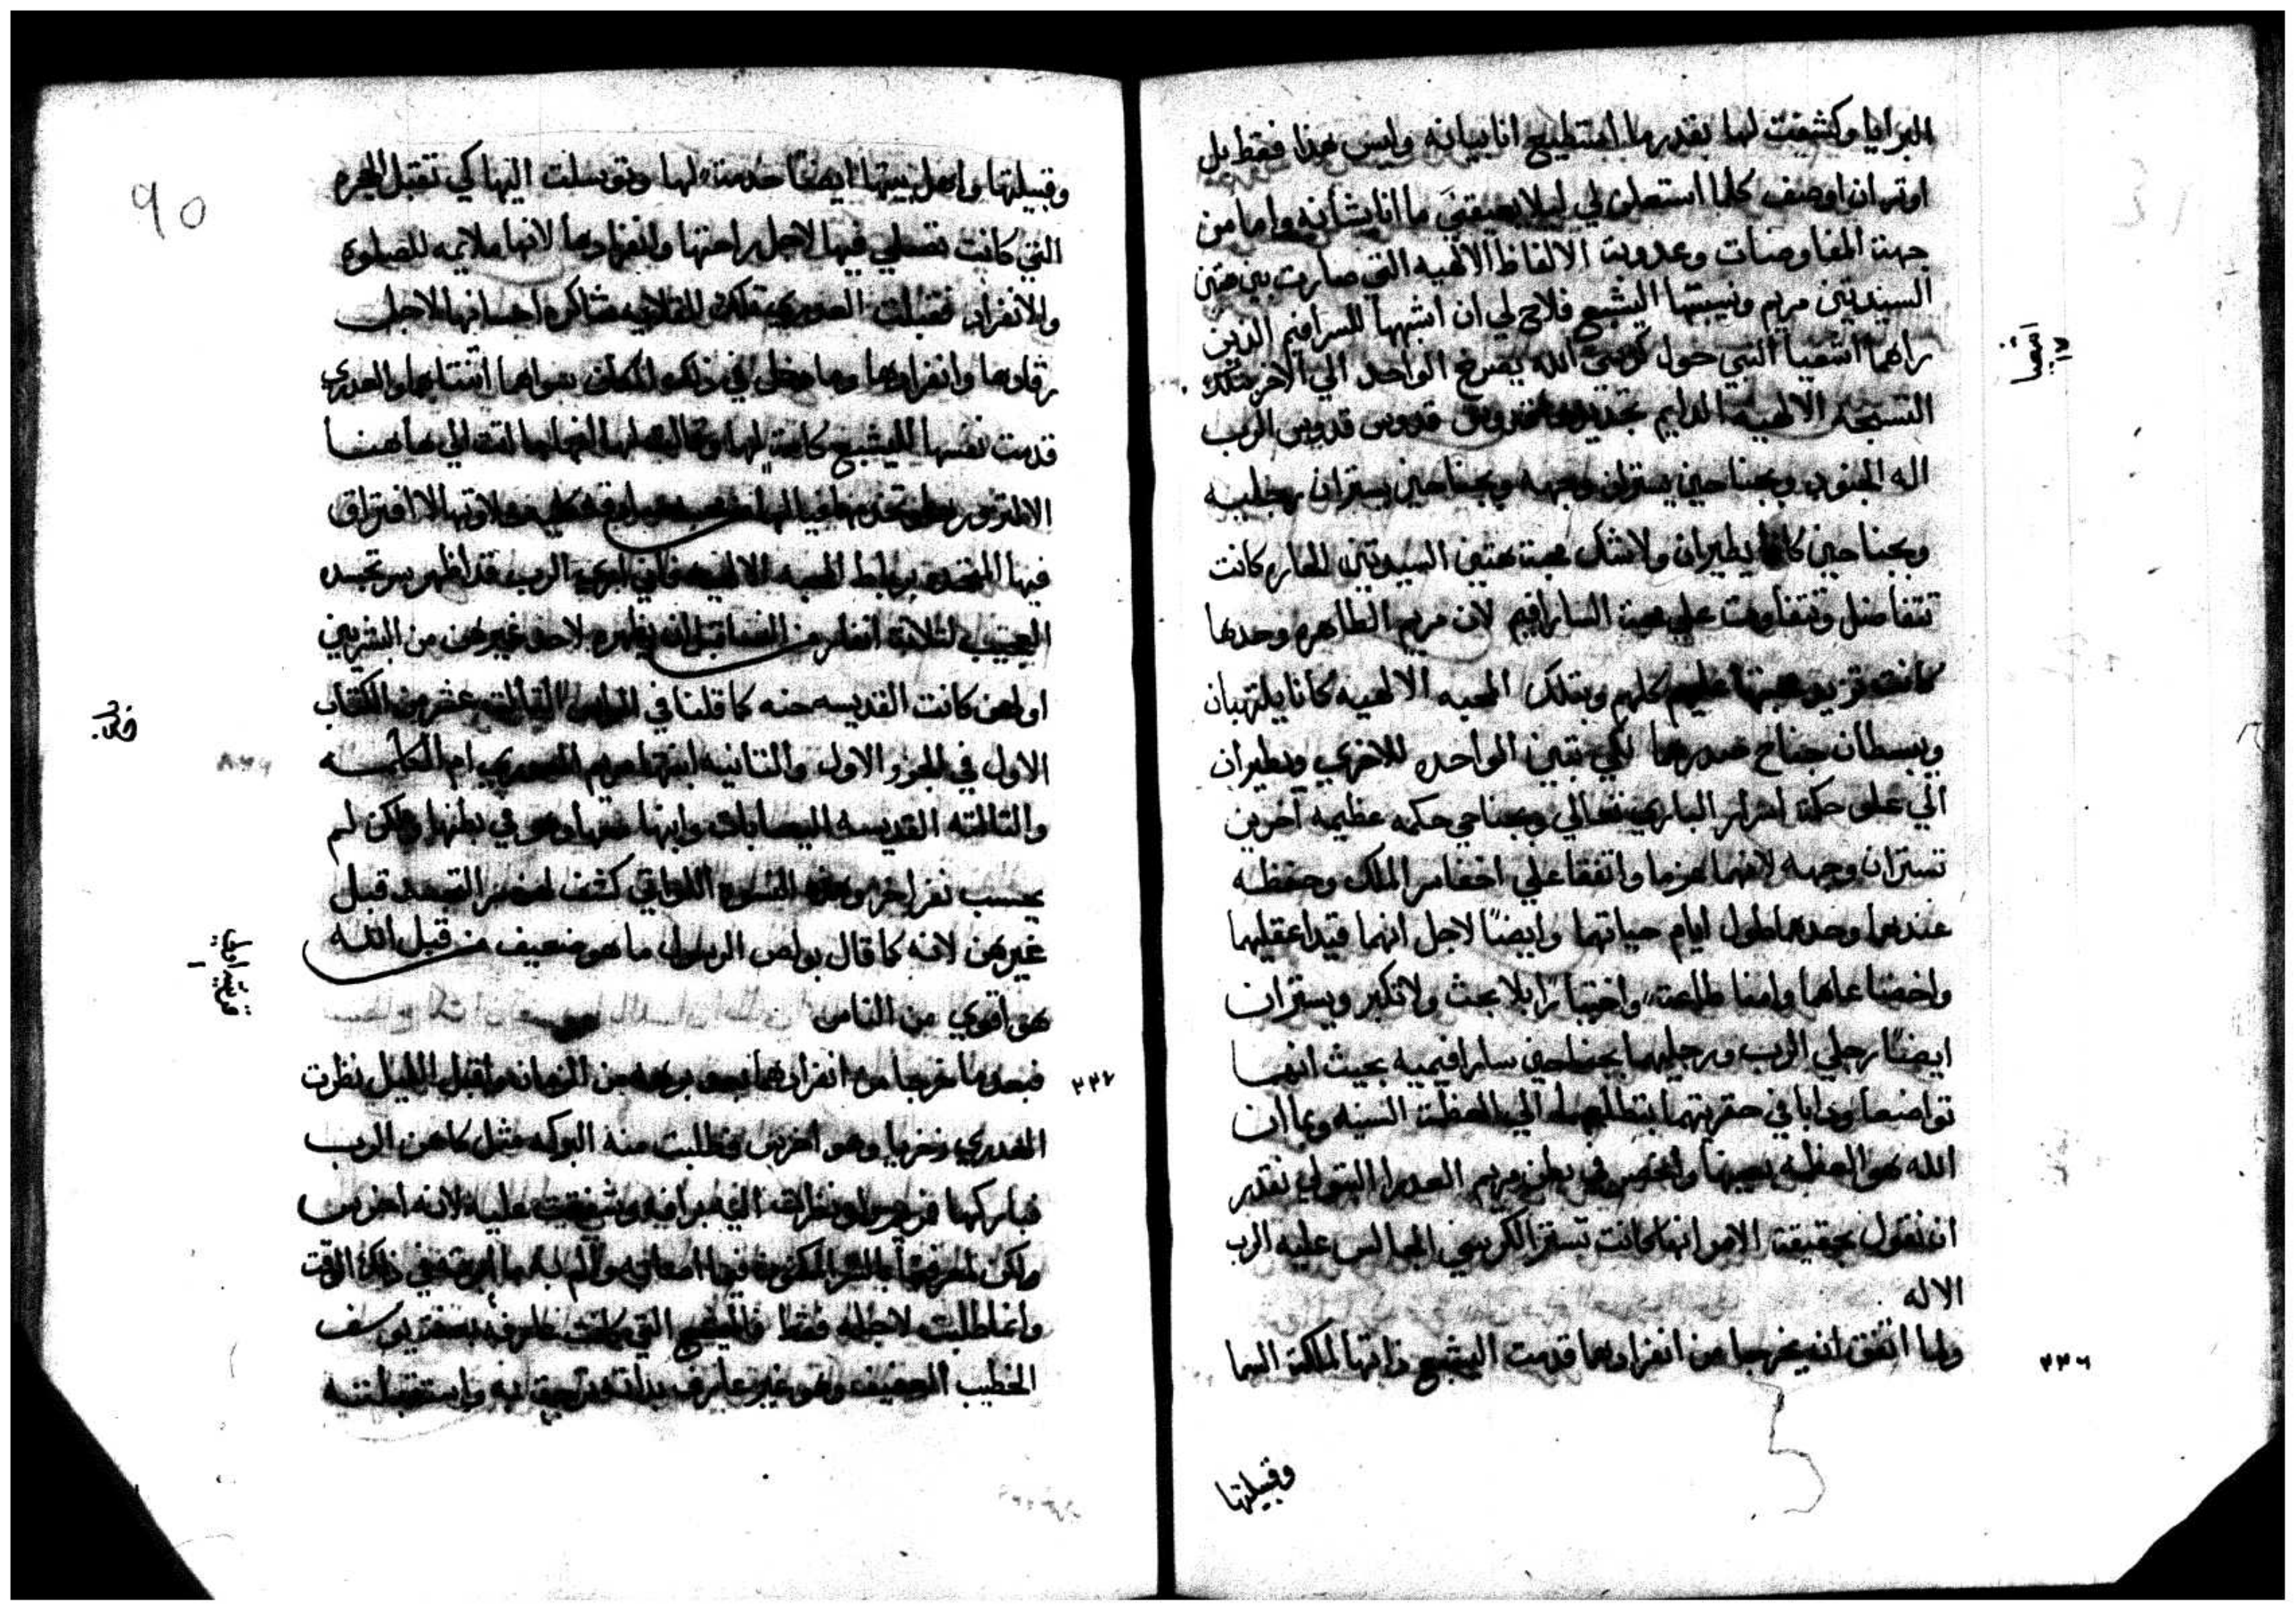 البرايا وكشفت لها بقدر ما استطيع انا بيانه وليس هذا فقط بل
اوثر ان اوصف كلما استعلن لي ليلا يعيقني ما انا بشانه واما من
جهة المفاوضات وعدوبت الالفاظ الالهيه التي صارت بين هتين
السيدتين مريم ونسيبتها اليشبع فلاح لي ان اشبهها للسرافيم الدين
راهما اشعيا النبي حول كرسي الله يصرخ الواحد الي الاخر بتلك
التسبحة الالهيه الدايم تجديدها قدوس قدوس قدوس الرب
اله الجنود وبجناحين يستران وجهه وبجناحين يستران رجليه
وبجناحين كانا يطيران ولا شك محبت هتين السيدتين للعاره كانت
تتفاضل وتتفاوت علي محبت السارافيم لان مريم الطاهره وحدها
كانت تزيد محبتها عليهم كلهم وبتلك المحبه الالهيه كانا يلتهبان
ويبسطان جناح صدرهما لكي تبين الواحده للاخري ويطيران
الي علو حكمة اسرار الباري تعالي وبجناحي حكمه عظيمه اخرين
تستران وجهه لانهما عزما واتفقا علي اخفا سر الملك وحفظه
عندهما وحدهما طول ايام حياتهما وايضًا لاجل انهما قيدا عقليهما
واخضعاهما وامنا طاعة واختبارًا بلا بحث ولا تكبر ويستران
ايضًا رجلي الرب ورجليهما بجناحين سارافيميه بحيث انهما
تواضعا ودابا في حقريتهما بتطلعهما الي العظمة السنيه وبما ان
الله هو العظمه بعينها في بطن مريم العدرا البتولي نقدر
ان نقول بحقيقة الامر انها كانت تستر الكرسي الجالس عليه الرب
الاله
ولما اتفق انه يخرجا من انفرادهما قدمت اليشبع ذاتها لملكة السما
اشعيا
٢٢٦
وقبيلتها
وقبيلتها واهل بيتها ايضًا خدمة لها وتوسلت اليها كي تقبل الحجره
التي كانت تصلي فيها لاجل راحتها وانفرادها لانها ملايمه للصلوه
والانفراد فقبلت العدري تلك القلايه شاكره احسانها لاجل
رقادها وانفرادها وما دخل في ذلك المكان سواهما اثنتاهما والعدري
قدمت نفسها لليشبع كامة لها وقالت لها انها ما اتت الي هاهنا
الا افتراق
فيها المتحده برباط المحبه الالهيه فاني اري الرب قد اظهر سر تجسده
العجيب لثلاثة انفار من النسا قبل ان يظهره لاحد غيرهن من البشريين
اولهن كانت القديسه حنه كما قلنا في الراس الثالث عشر من الكتاب
الاول في الجزو الاول والثانيه ابنتها مريم العدري ام الكلمه
والثالثه القديسه اليصابات وابنها معها وهو في بطنها ولكن لم
يحسب نفر اخر وهذه النسوه اللواتي كشف لهن سر التجسد قبل
غيرهن لانه كما قال بولص الرسول ما هو ضعيف من قبل الله
هو اقوي من الناس
فبعد ما خرجا من انفرادهما بعد برهه من الزمان واقبل الليل نظرت
العدري زخريا وهو اخرس فطلبت منه البركه مثل كاهن الرب
فباركها ونظرت اليه برافه وشفقت عليه لانه اخرس
ولكن لمعرفتها بالسر المكنون فيها في ذلك الوقت
وانما طلبت لاجله فقط واليشبع التي كانت عارفه بسعد يوسف
الخطيب العفيف وهو غير عارف بداته ترحبت به واستقبلته
٢٢٧
قرنتيه اولي
١
٩٥